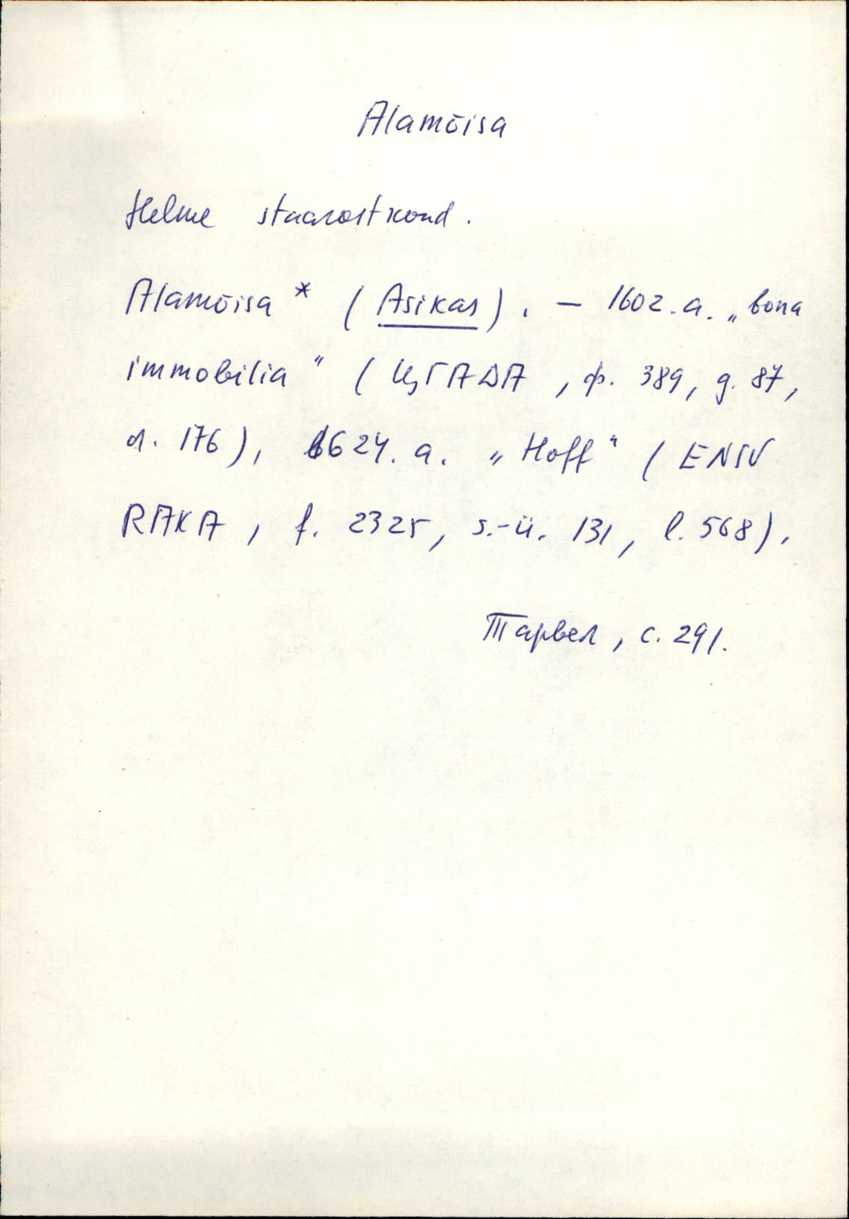 Alamõisa
Helme staarostkond.
Alamõisa * (Asikas). – 1602.a. „bona
immobilia" (ЦГАДА, ф. 389, д. 87,
л. 176), 1624. a. „Hoff" (ENSV
RAKA, f. 2325, s.-ü. 131, l. 568).
Тарвел, с. 291.